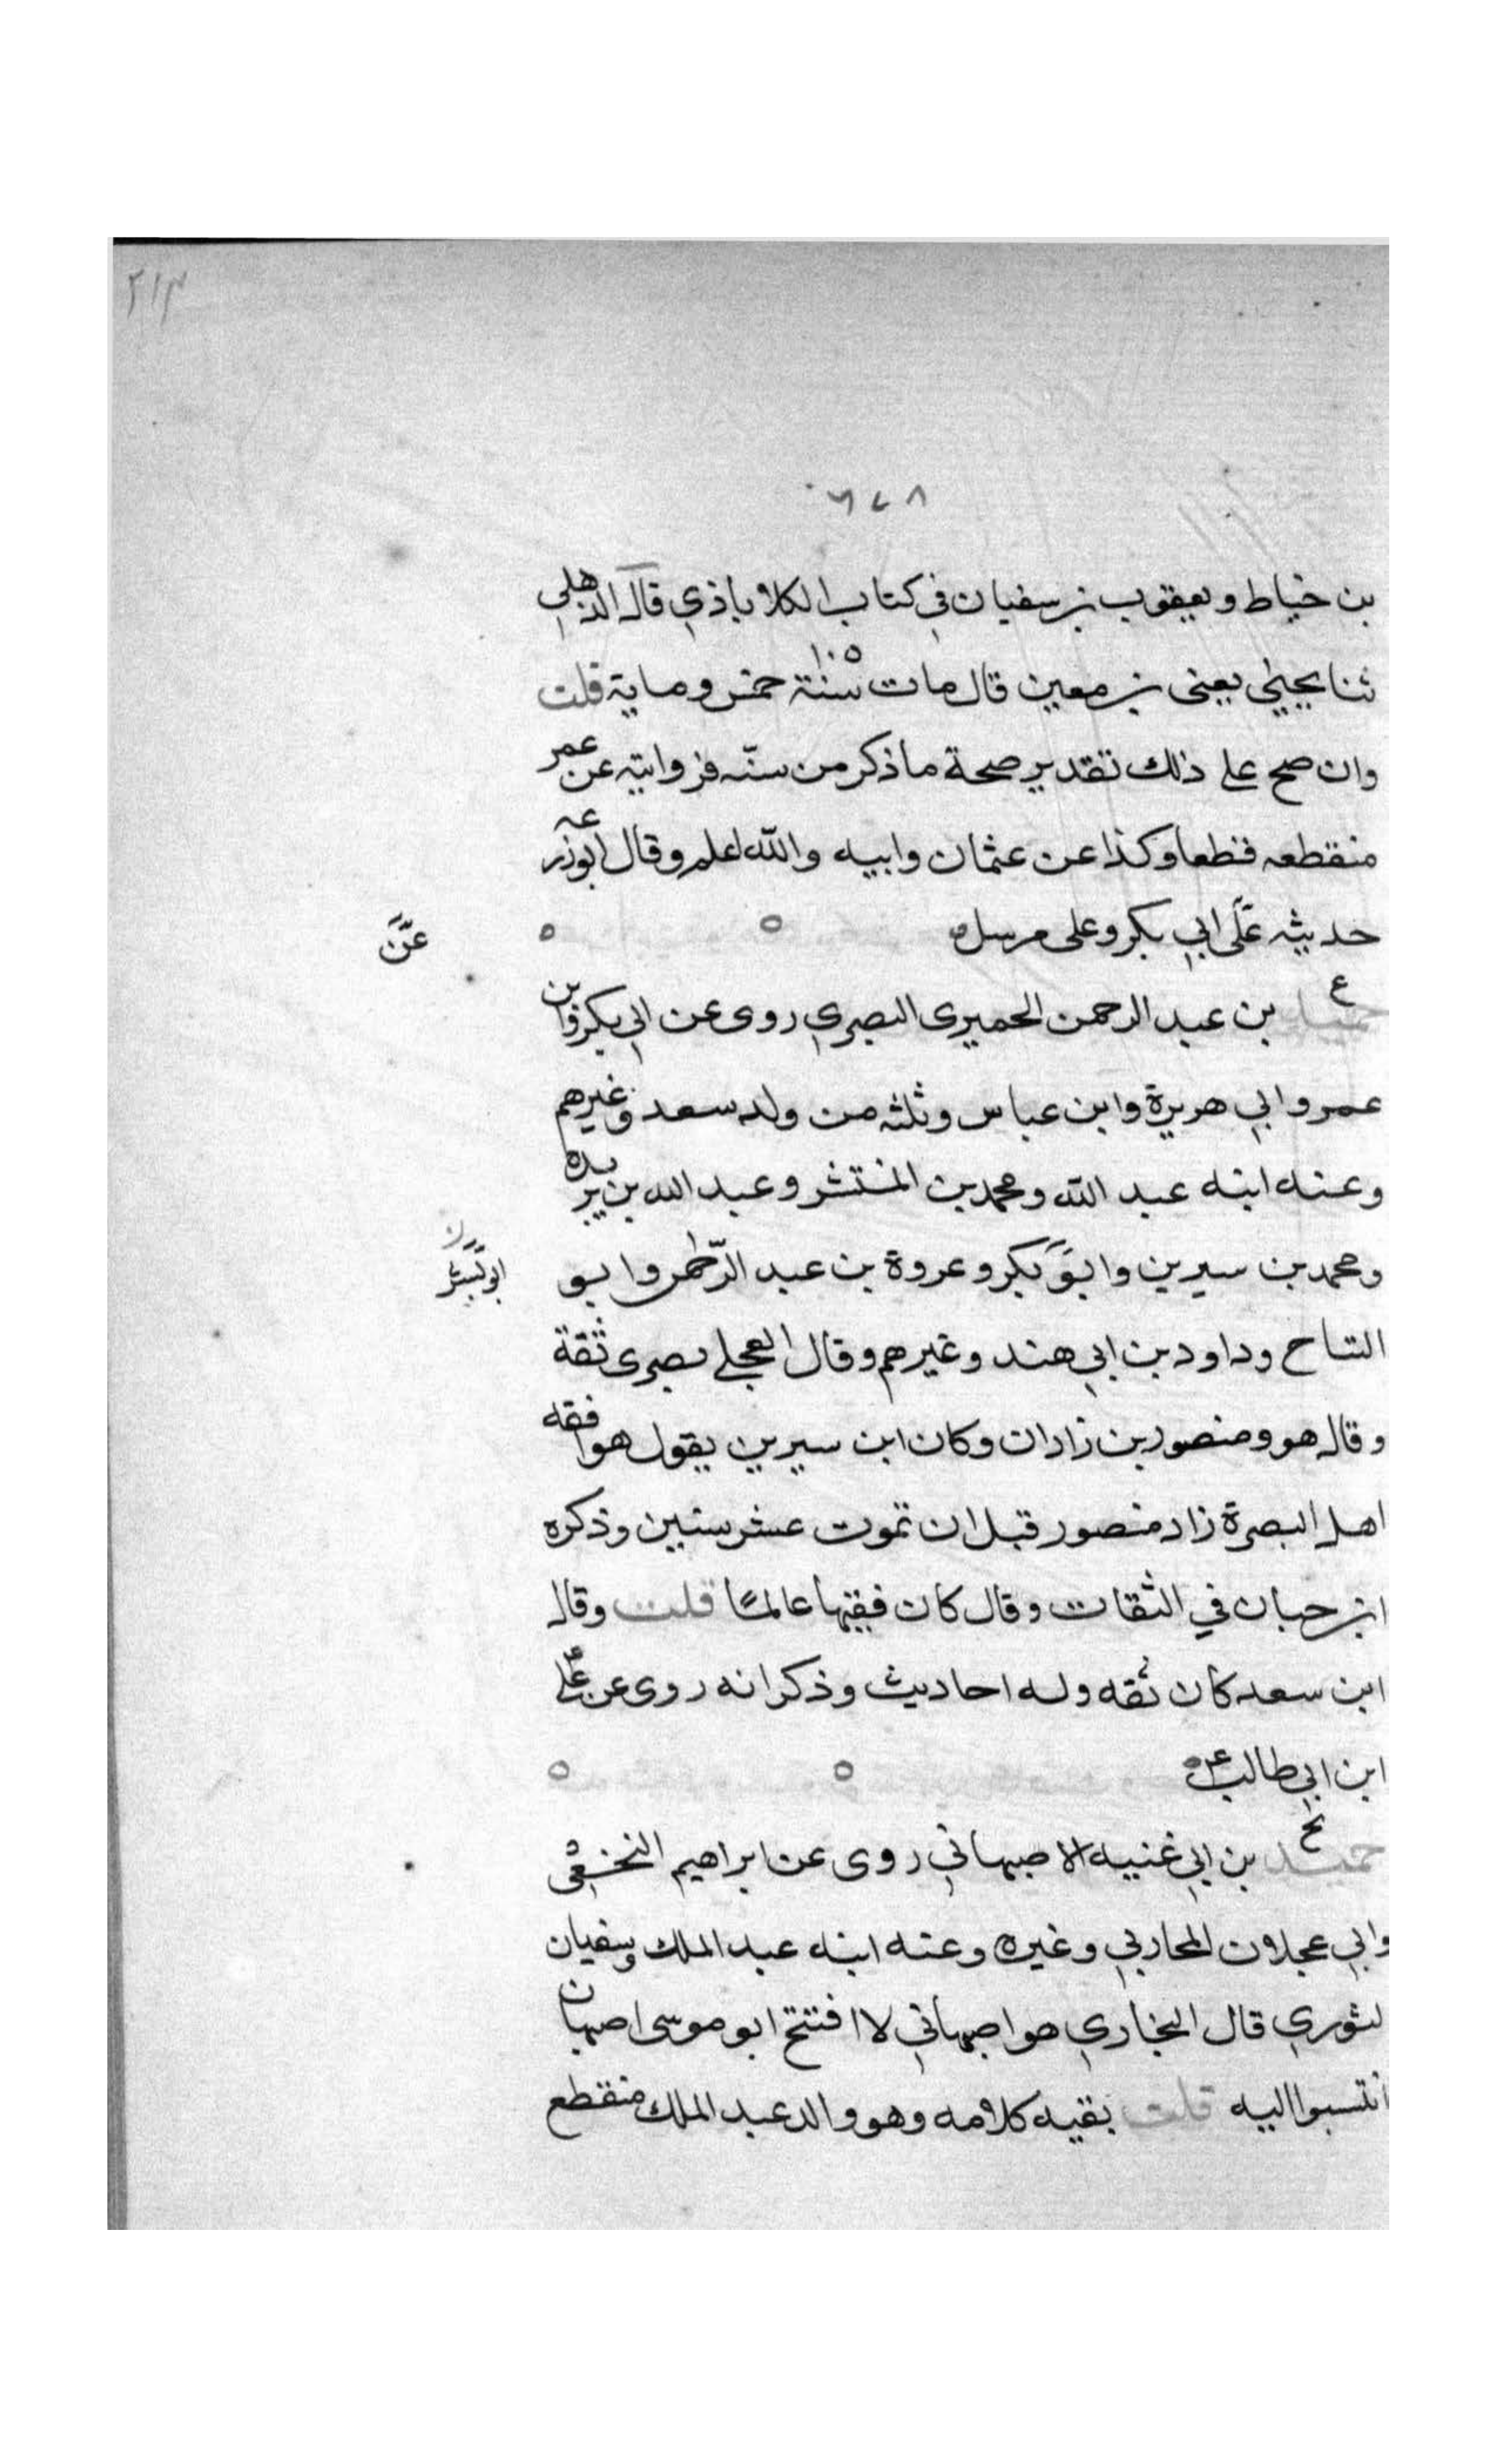 ٢١٣
٦٧٨
بن خياط ويعقوب بن سفيان في كتاب الكلاباذي قال الذهلي
ثنا يحيى يعني بن معين قال مات سنة خمس وماية قلت
١٠٥
وان صح على ذلك تقدير صحة ما ذكر من سنّه فروايته عن عمر
منقطعه قطعا وكذا عن عثمان وابيه والله اعلم وقال ابوزرعه
حديثه على ابي بكر وعلى مرسل
عن
ع
حميد بن عبد الرحمن الحميرى البصري روى عن ابي بكرة وابن
عمر وابي هريرة وابن عباس وثلثه من ولد سعد وغيرهم
وعنه ابنه عبد الله ومحمد بن المنتشر وعبد الله بن بريده
ومحمد بن سيرين وابو بكر وعروة بن عبد الرّحمن وابو
ابو بشر
التياح وداود بن ابي هند وغيرهم وقال العجلي بصرى ثقة
وقال هو ومنصور بن زادان وكان ابن سيرين يقول هو افقه
اهل البصرة زاد منصور قبل ان تموت عشر سنين وذكره
ابن حبان في الثقات وقال كان فقيها عالمًا قلت وقال
ابن سعد كان ثقه وله احاديث وذكر انه روى عن علي
ابن ابي طالب
بخ
حميد بن ابي غنيه الاصبهاني روى عن ابراهيم النخعى
وابي عجلان المحاربي وغيره وعنه ابنه عبد الملك وسفيان
لثوري قال البخاري هو اصبهاني لا افتتح ابو موسى اصبهان
انتسبوا اليه قلت بقيه كلامه وهو والد عبد الملك منقطع